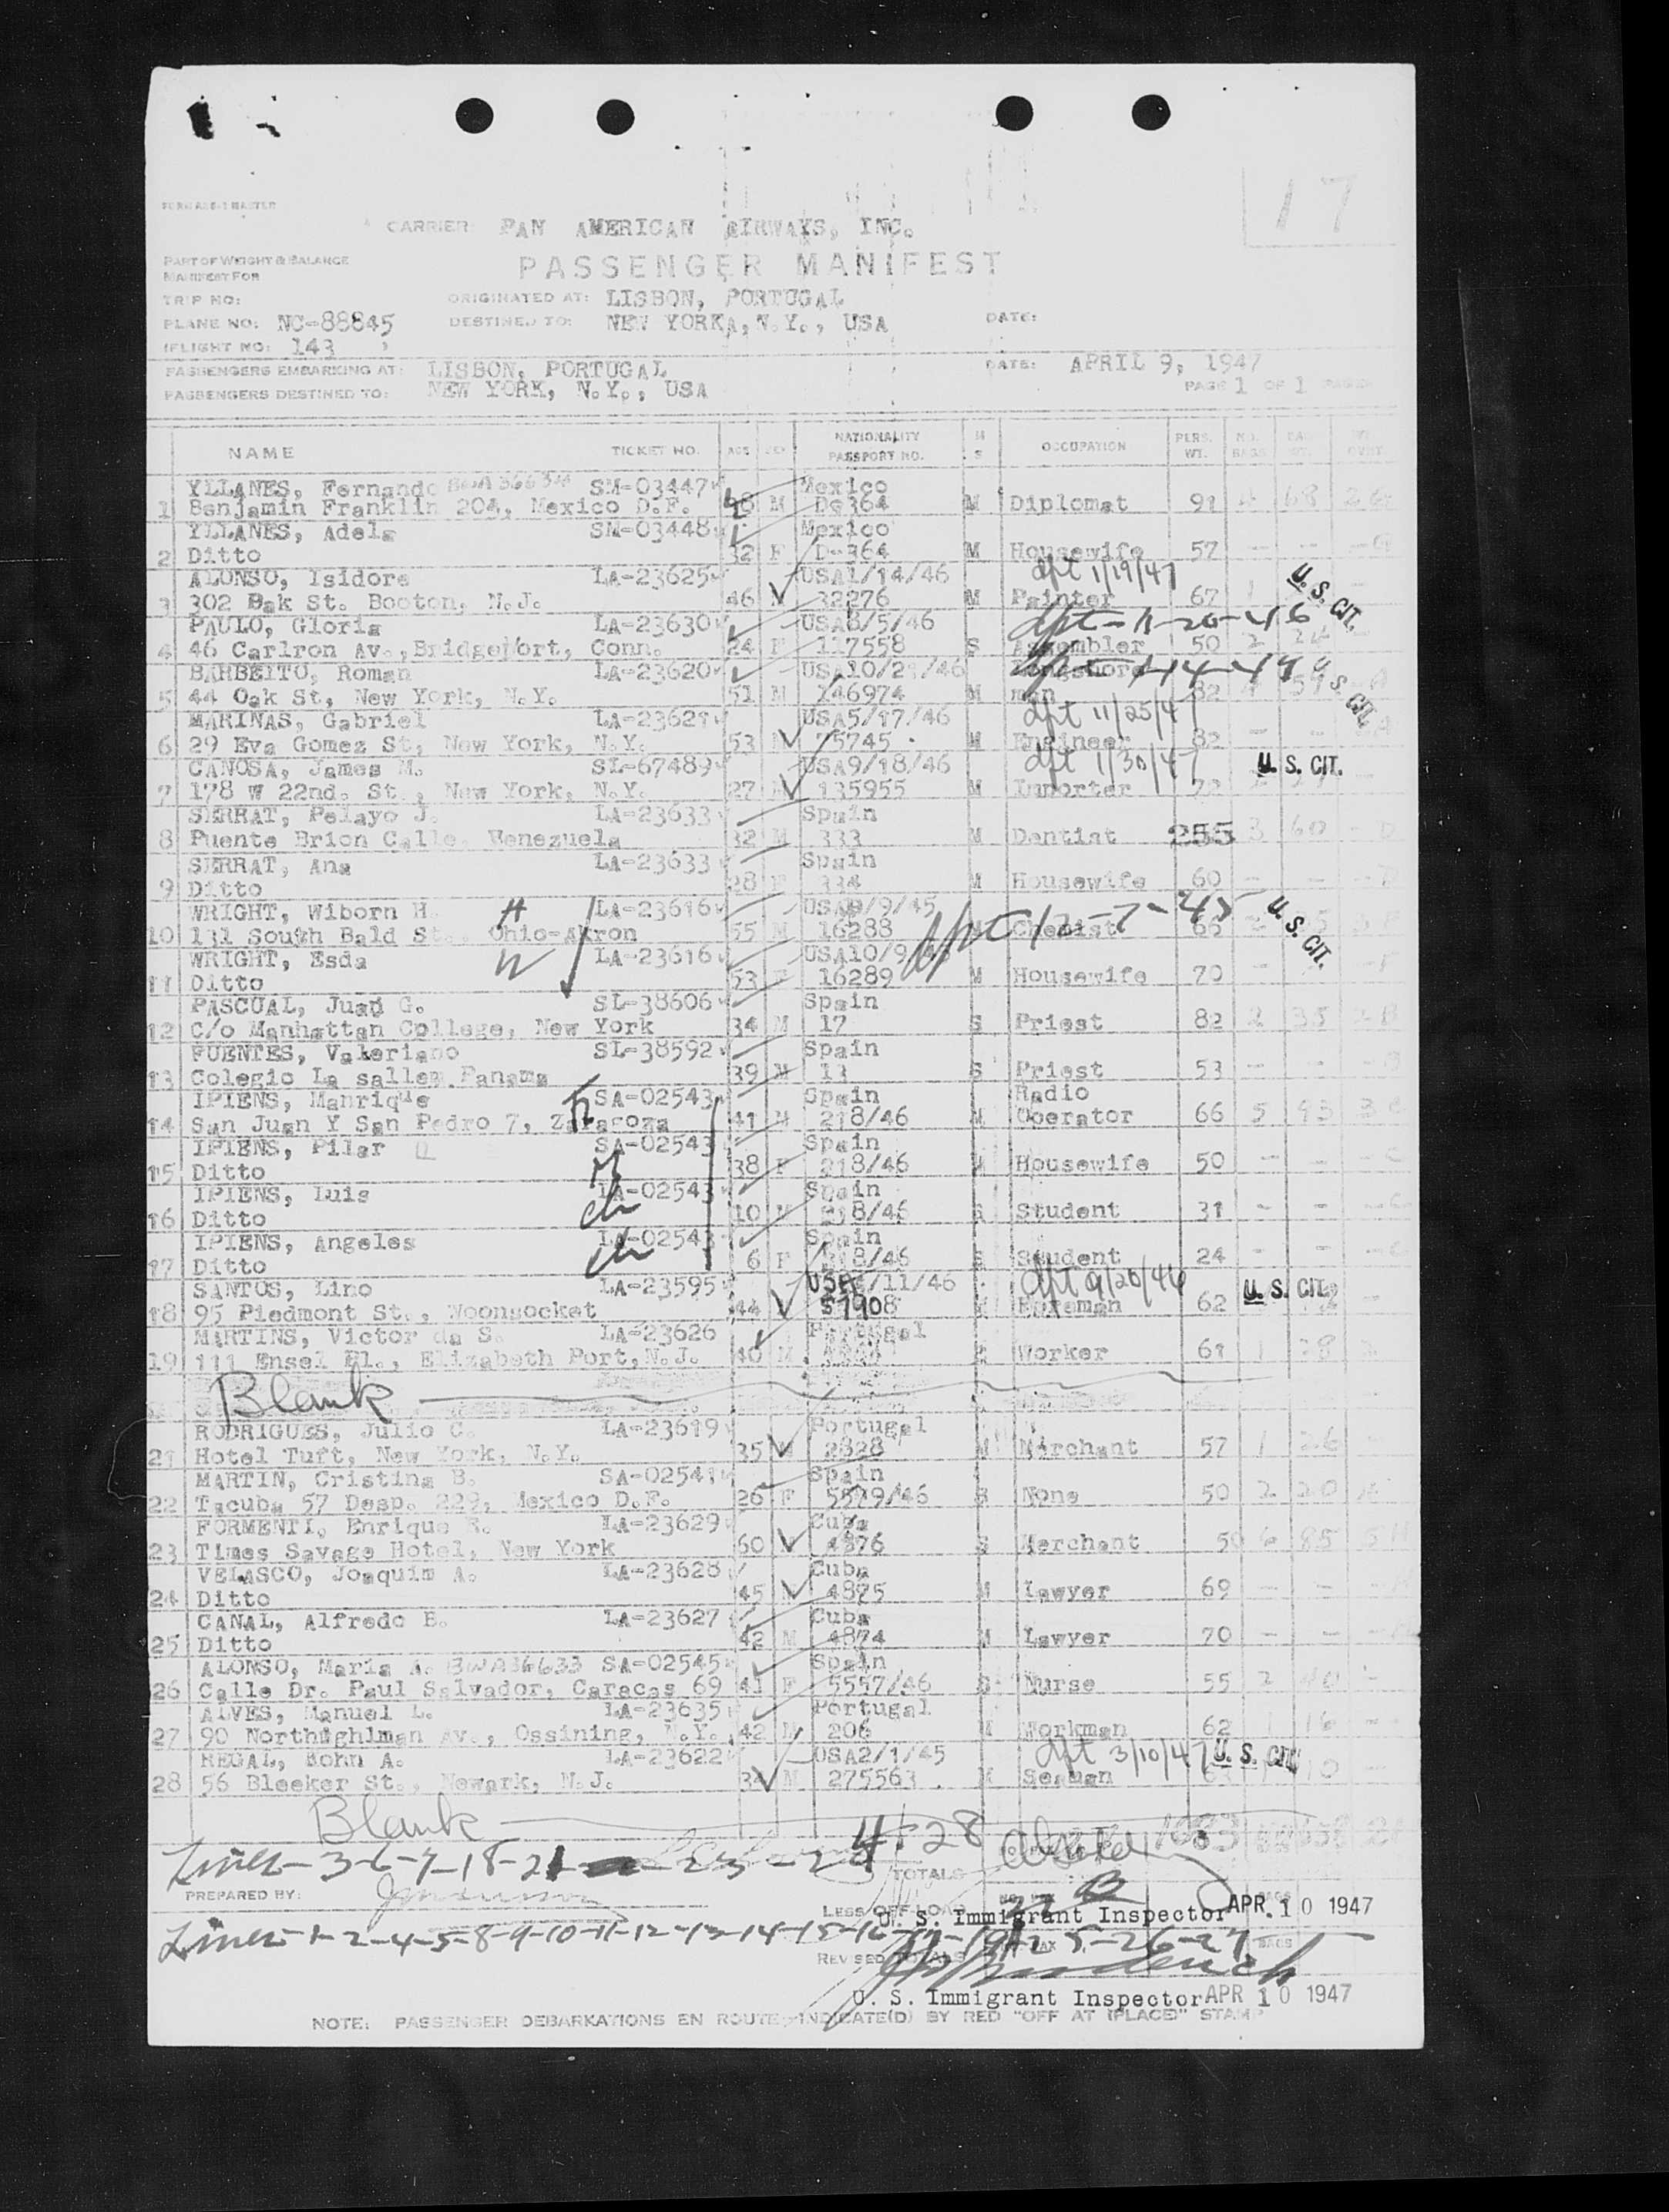 17
CARRIER: PAN AMERICAN AIRWAYS, INC.
PART OF WEIGHT & BALANCE
MANIFEST FOR
PASSENGER MANIFEST
TRIP NO: ORIGINATED AT: LISBON, PORTUGAL
PLANE NO: NC-88845 DESTINED TO: NEW YORKA, N.Y., USA DATE:
FLIGHT NO: 143
PASSENGERS EMBARKING AT: LISBON, PORTUGAL DATE: APRIL 9, 1947
PASSENGERS DESTINED TO: NEW YORK, N.Y., USA PAGE 1 OF 1 PAGES
NAME TICKET NO. AGE SEX NATIONALITY PASSPORT NO. M S OCCUPATION PERS. WT. NO. BAGS
YLLANES, Fernando SM-03447 Mexico
1 Benjamin Franklin 204, Mexico D.F. M D-364 M Diplomat 91 68
YLLANES, Adela SM-03448 Mexico
2 Ditto 32 F D-364 M Housewife 57
ALONSO, Isidore LA-23625 USA1/14/46 dpt 1/19/47 U. S. CIT.
3 302 Bak St. Booton, N.J. 46 32276 M Painter 67 1
PAULO, Gloria LA-23630 USA8/5/46 dpt-11-20-46
4 46 Carlron Av., Bridgeport, Conn. 24 F 117558 S Assembler 50 2
BARBEITO, Roman LA-23620 U S CIT.
5 44 Oak St, New York, N.Y. 51 M 146974 M man 82
MARINAS, Gabriel LA-23621 USA5/17/46 dpt 11/25/4
6 29 Eva Gomez St, New York, N.Y. 53 75745 M Engineer 82
CANOSA, James M. SL-67489 USA9/18/46 dpt 1/30/47 U. S. CIT.
7 178 W 22nd. St., New York, N.Y. 27 135955 M Importer 72
SERRAT, Pelayo J. LA-23633 Spain
8 Puente Brion Calle, Venezuela 32 M 333 M Dentist 255 3 60
SERRAT, Ana LA-23633 Spain
9 Ditto 28 F 334 M Housewife 60
WRIGHT, Wiborn H. H LA-23616 USA9/9/45 dpt 12-7-45 U. S. CIT.
10 131 South Bald St., Ohio-Akron 55 M 16288 Chemist 66
WRIGHT, Esda W LA-23616
11 Ditto 53 F 16289 M Housewife 70
PASCUAL, Juan G. SL-38606 Spain
12 C/o Manhattan College, New York 34 M 17 S Priest 82 2 35
FUENTES, Valeriano SL-38592 Spain
13 Colegio La salle, Panama 39 M 13 S Priest 53
IPIENS, Manrique SA-02543 Spain Radio
14 San Juan Y San Pedro 7, Zaragoza 41 M 218/46 M Operator 66 5 93 3
IPIENS, Pilar SA-02543 Spain
15 Ditto 38 F 218/46 M Housewife 50
IPIENS, Luis ch LA-02543 Spain
16 Ditto 10 M 218/46 S Student 31
IPIENS, Angeles ch LA-02543 Spain
17 Ditto 6 F 218/46 S Student 24
SANTOS, Lino LA-23595 /11/46 dpt 9/20/46 U. S. CIT.
18 95 Piedmont St., Woonsocket 44 57908 M Foreman 62
MARTINS, Victor da S. LA-23626 Portugal
19 111 Ensel Pl., Elizabeth Port, N.J. 40 M S Worker 61 1 28
Blank
RODRIGUES, Julio C. LA-23619 Portugal
21 Hotel Tuft, New York, N.Y. 35 M 2828 M Merchant 57 1 26
MARTIN, Cristina B. SA-02541 Spain
22 Tacuba 57 Desp. 229, Mexico D.F. 26 F 5529/46 S None 50 2 20
FORMENTI, Enrique LA-23629 Cuba
23 Times Savage Hotel, New York 60 4876 S Merchant 50 6 85
VELASCO, Joaquim A. LA-23628 Cuba
24 Ditto 45 M 4875 M Lawyer 69
CANAL, Alfredo E. LA-23627 Cuba
25 Ditto 42 M 4874 M Lawyer 70
ALONSO, Maria A. BWA36633 SA-02545 Spain
26 Calle Dr. Paul Salvador, Caracas 69 41 F 5557/46 S Nurse 55 2 40
ALVES, Manuel L. LA-23635 Portugal
27 90 Northughlman Av., Ossining, N.Y. 42 M 206 M Workman 62 1 16
REGAL, Bohn A. LA-23622 USA2/1/45 dpt 3/10/47 U. S. CIT.
28 56 Bleeker St., Newark, N.J. 34 M 275563 M Seaman 10
Blank
Lines-3-6-7-18-21 23
TOTALS
PREPARED BY:
U. S. Immigrant Inspector APR. 10 1947
Lines-1-2-4-5-8-9-10-11-12-13-14-15-16 26-27
REVISED TOTALS
U. S. Immigrant Inspector APR 10 1947
NOTE: PASSENGER DEBARKATIONS EN ROUTE INDICATE(D) BY RED "OFF AT (PLACE)" STAMP